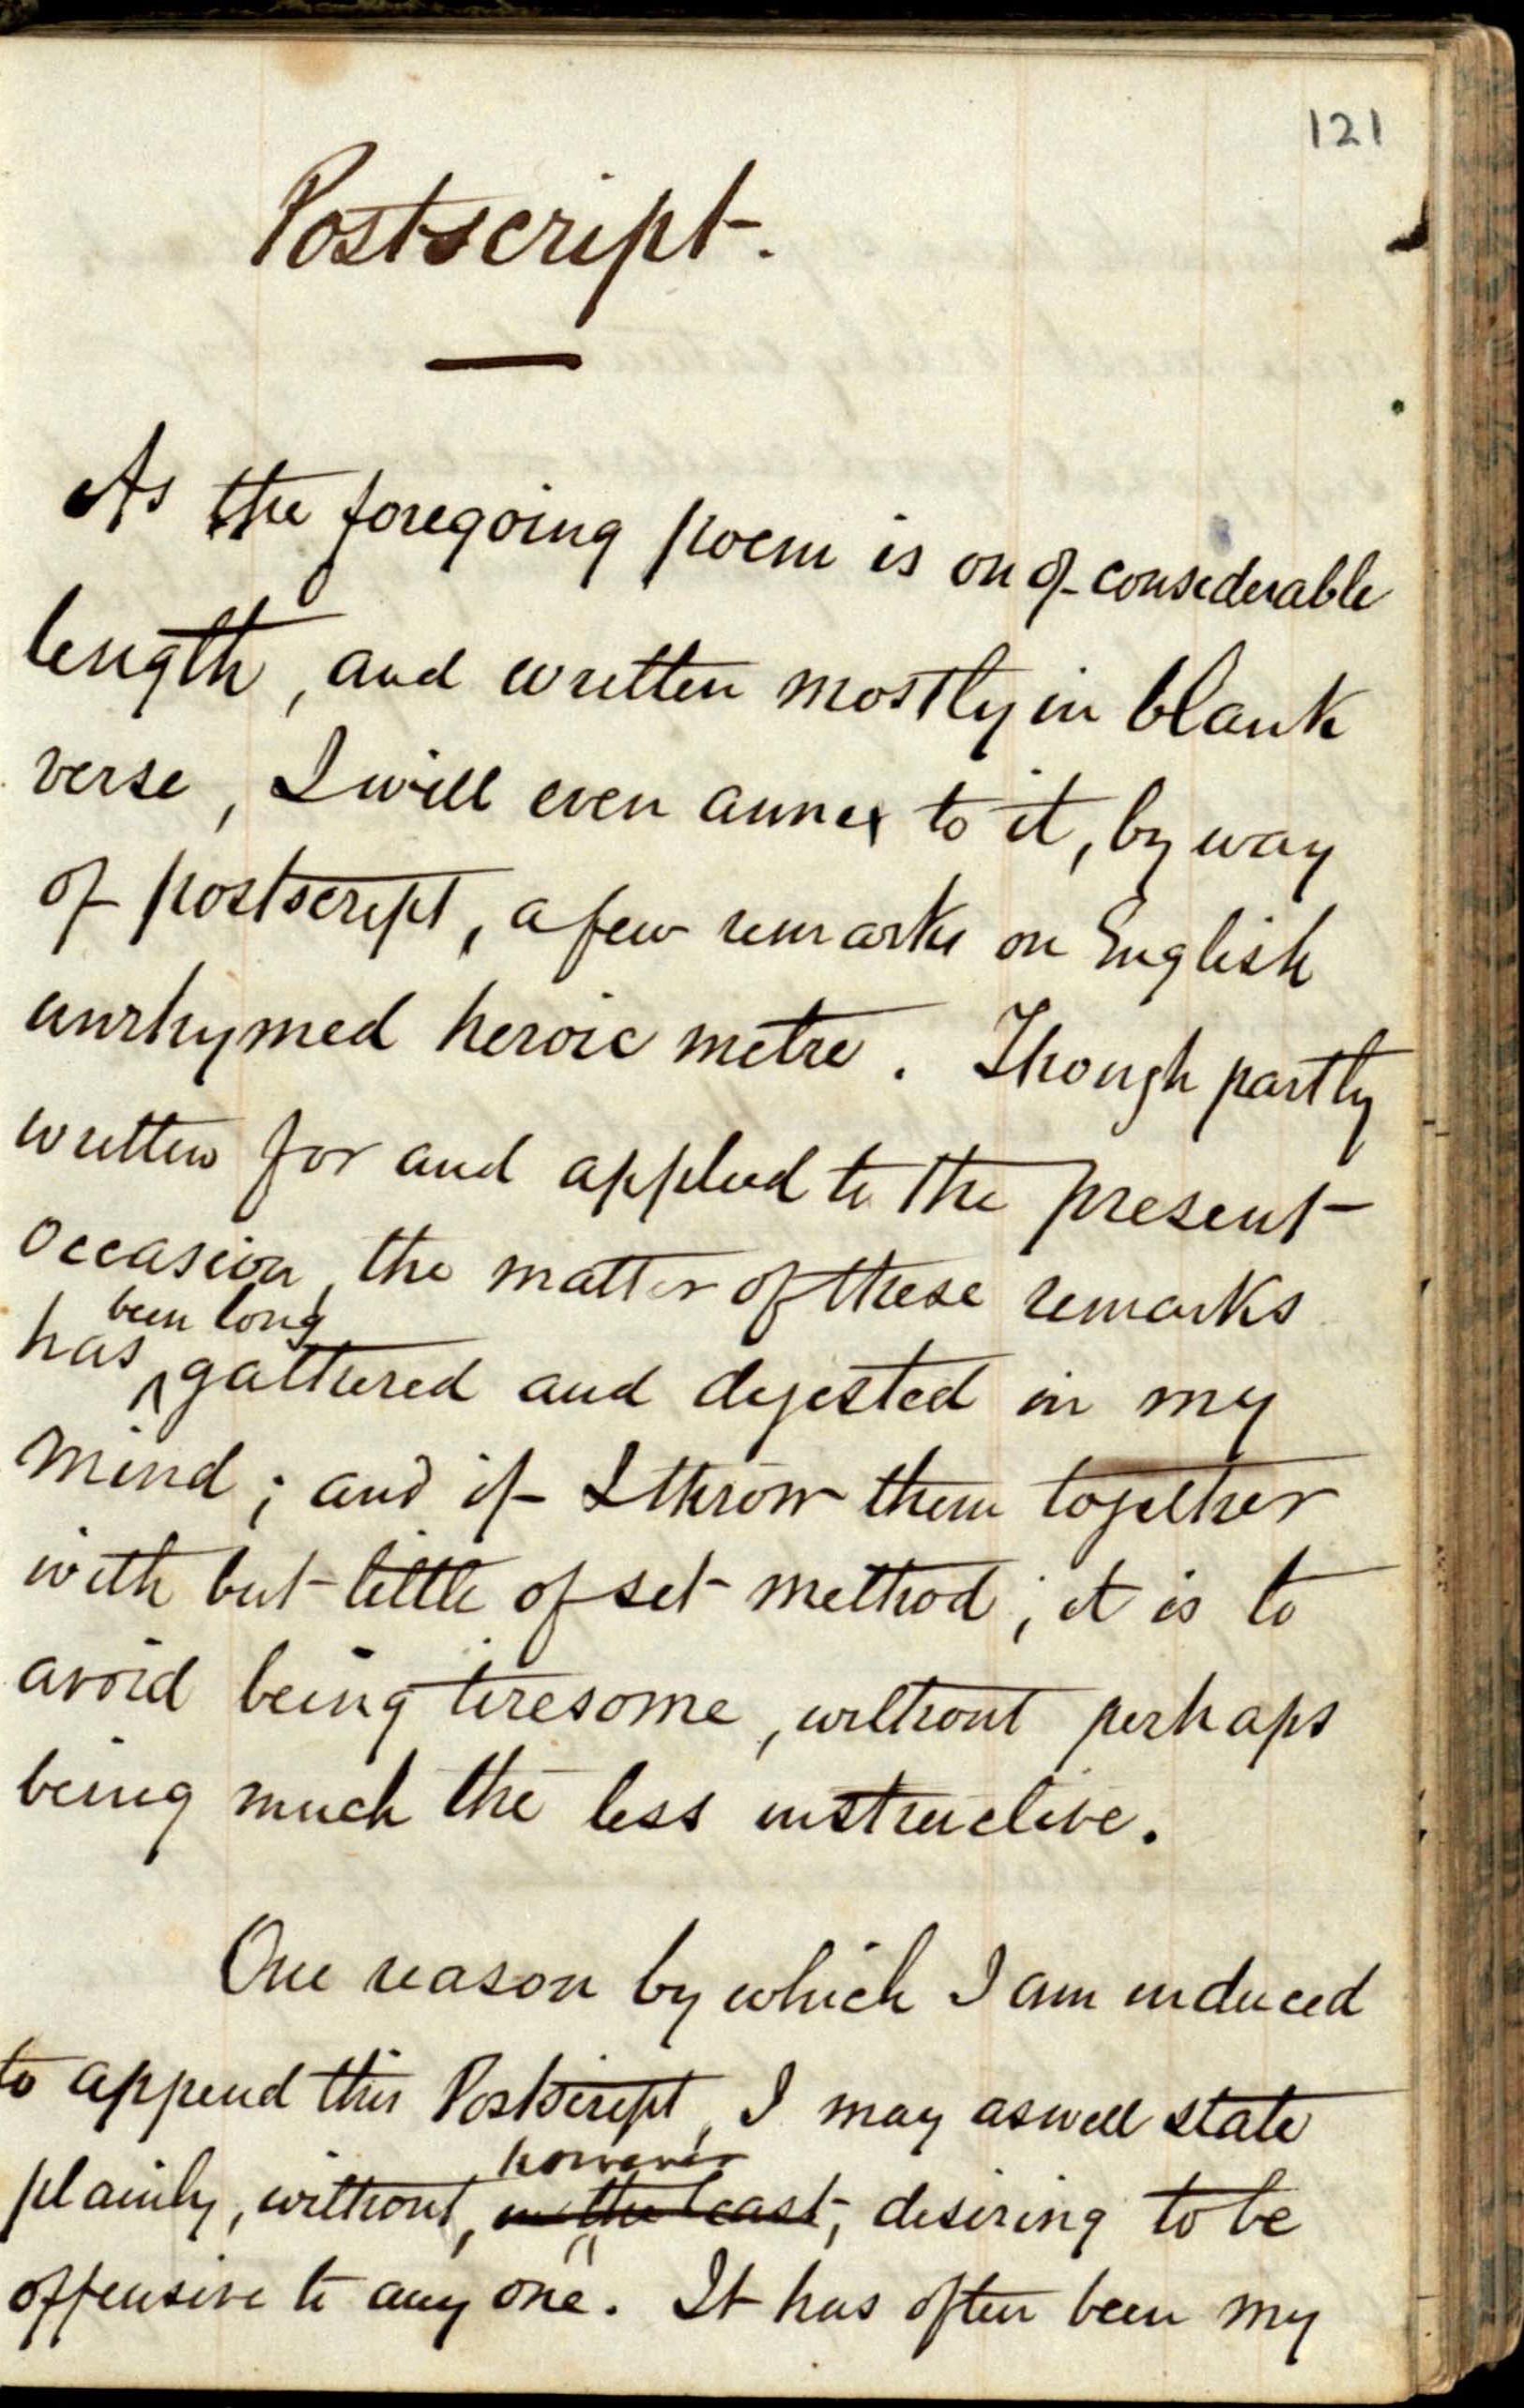 121
Postscript.
As the foregoing poem is on of considerable
length, and written mostly in blank
verse, I will even annex to it, by way
of postscript, a few remarks on English
unrhymed heroic metre. Though partly
written for and applied to the present
occasion, the matter of these remarks
been long
has ^ gathered and digested in my
mind; and if I throw them together
with but little of set method; it is to
avoid being tiresome, without perhaps
being much the less instructive.
One reason by which I am induced
to append this Postscript, I may as well state
however
plainly, without, in the least, desiring to be
offensive to any one. It has often been my